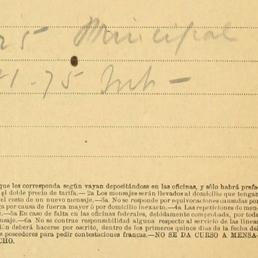 25 Principal
71-75 Int-
que les corresponda según vayan depositándose en las oficinas, y sólo habrá prefe-
el doble precio de tarifa.—2a Los mensajes serán llevados al domicilio que tengan
el costo de un nuevo mensaje.—3a No se responde por equivocaciones causadas por
ga por causa de fuerza mayor ó por domicilio inexacto.—4a Las repeticiones de men-
.—5a En caso de falta en las oficinas federales, debidamente comprobada, por toda
mensaje.—6a No se contrae responsabilidad alguna respecto al servicio de las líneas
ón deberá hacerse por escrito, dentro de los primeros quince días de la fecha del
s poseedores para pedir contestaciones francas.—NO SE DA CURSO A MENSA-
CHO.